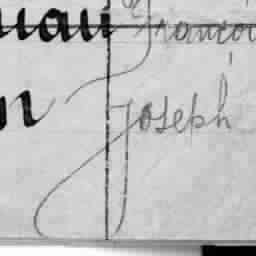 uau François
n Joseph